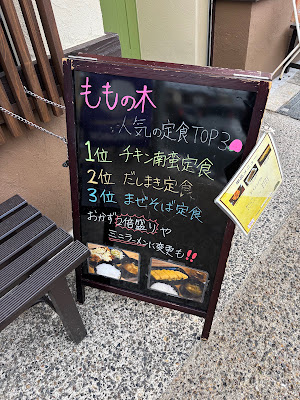 ももの木
人気の定食TOP3
1位 チキン南蛮定食
2位 だしまき定食
3位 まぜそば定食
おかず2倍盛りや
ミニラーメンに変更も!!